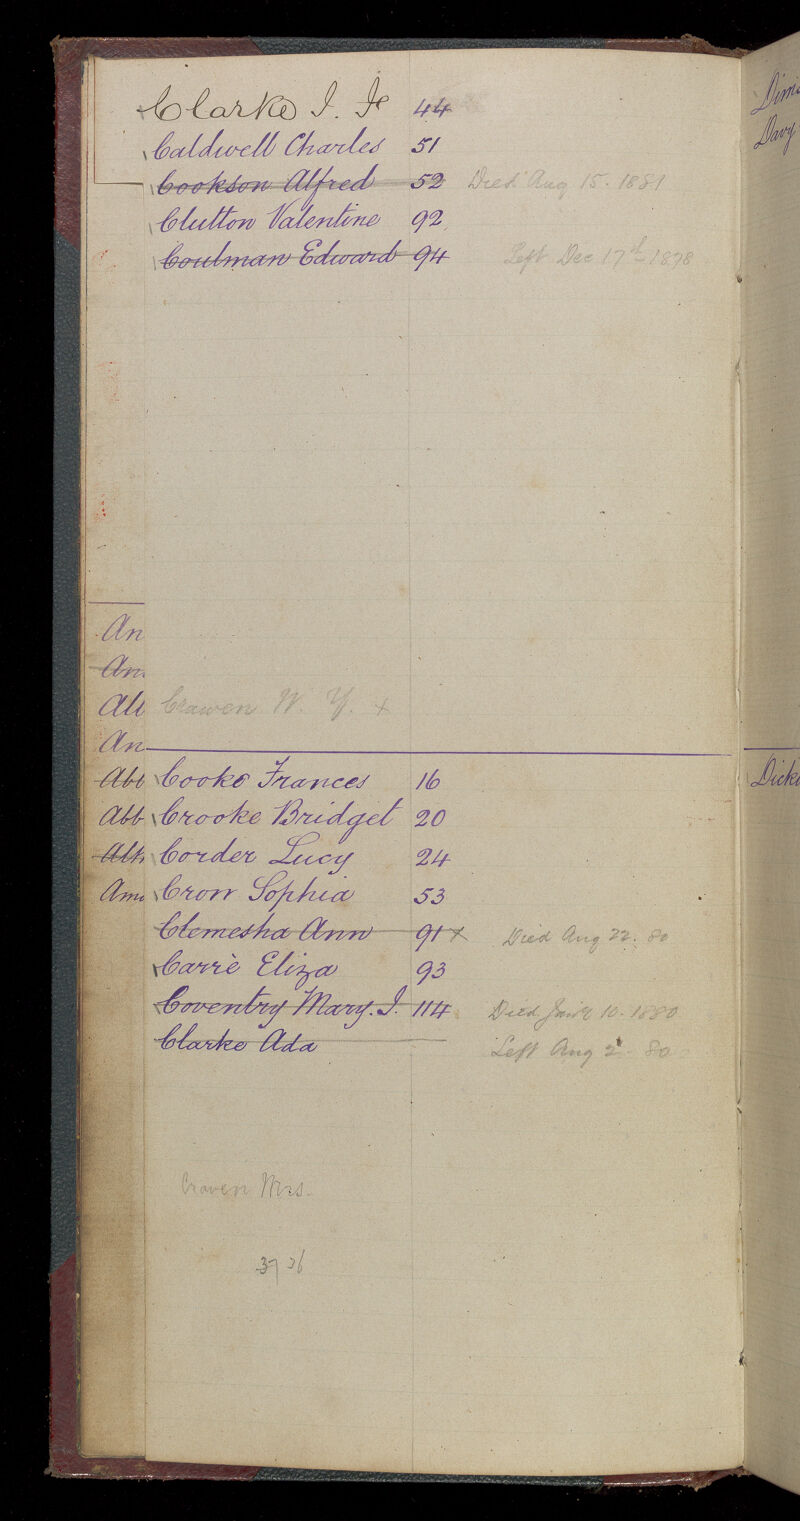 Clarke I. F. 44
Caldwell Charles 51
Cookson Alfred 52 Died Aug 15. 1881
Clutton Valentine 92
Coulman Edward 94 Left Dec 17th 1878
An
An
All
Crawen W. Y. x
An
Abb
Cooke Frances 16
Abb
Crooke Bridget 20
Corder Lucy 24
Crow Sophia 53
Clemesha Ann 91 x Died Aug 22. 80
Carrè Eliza 93
Coventry Mary. J. 114 Died Jany 10. 1880
Clarke Ada Left Aug 2 - 80
Craven Mrs.
37 36
Davy